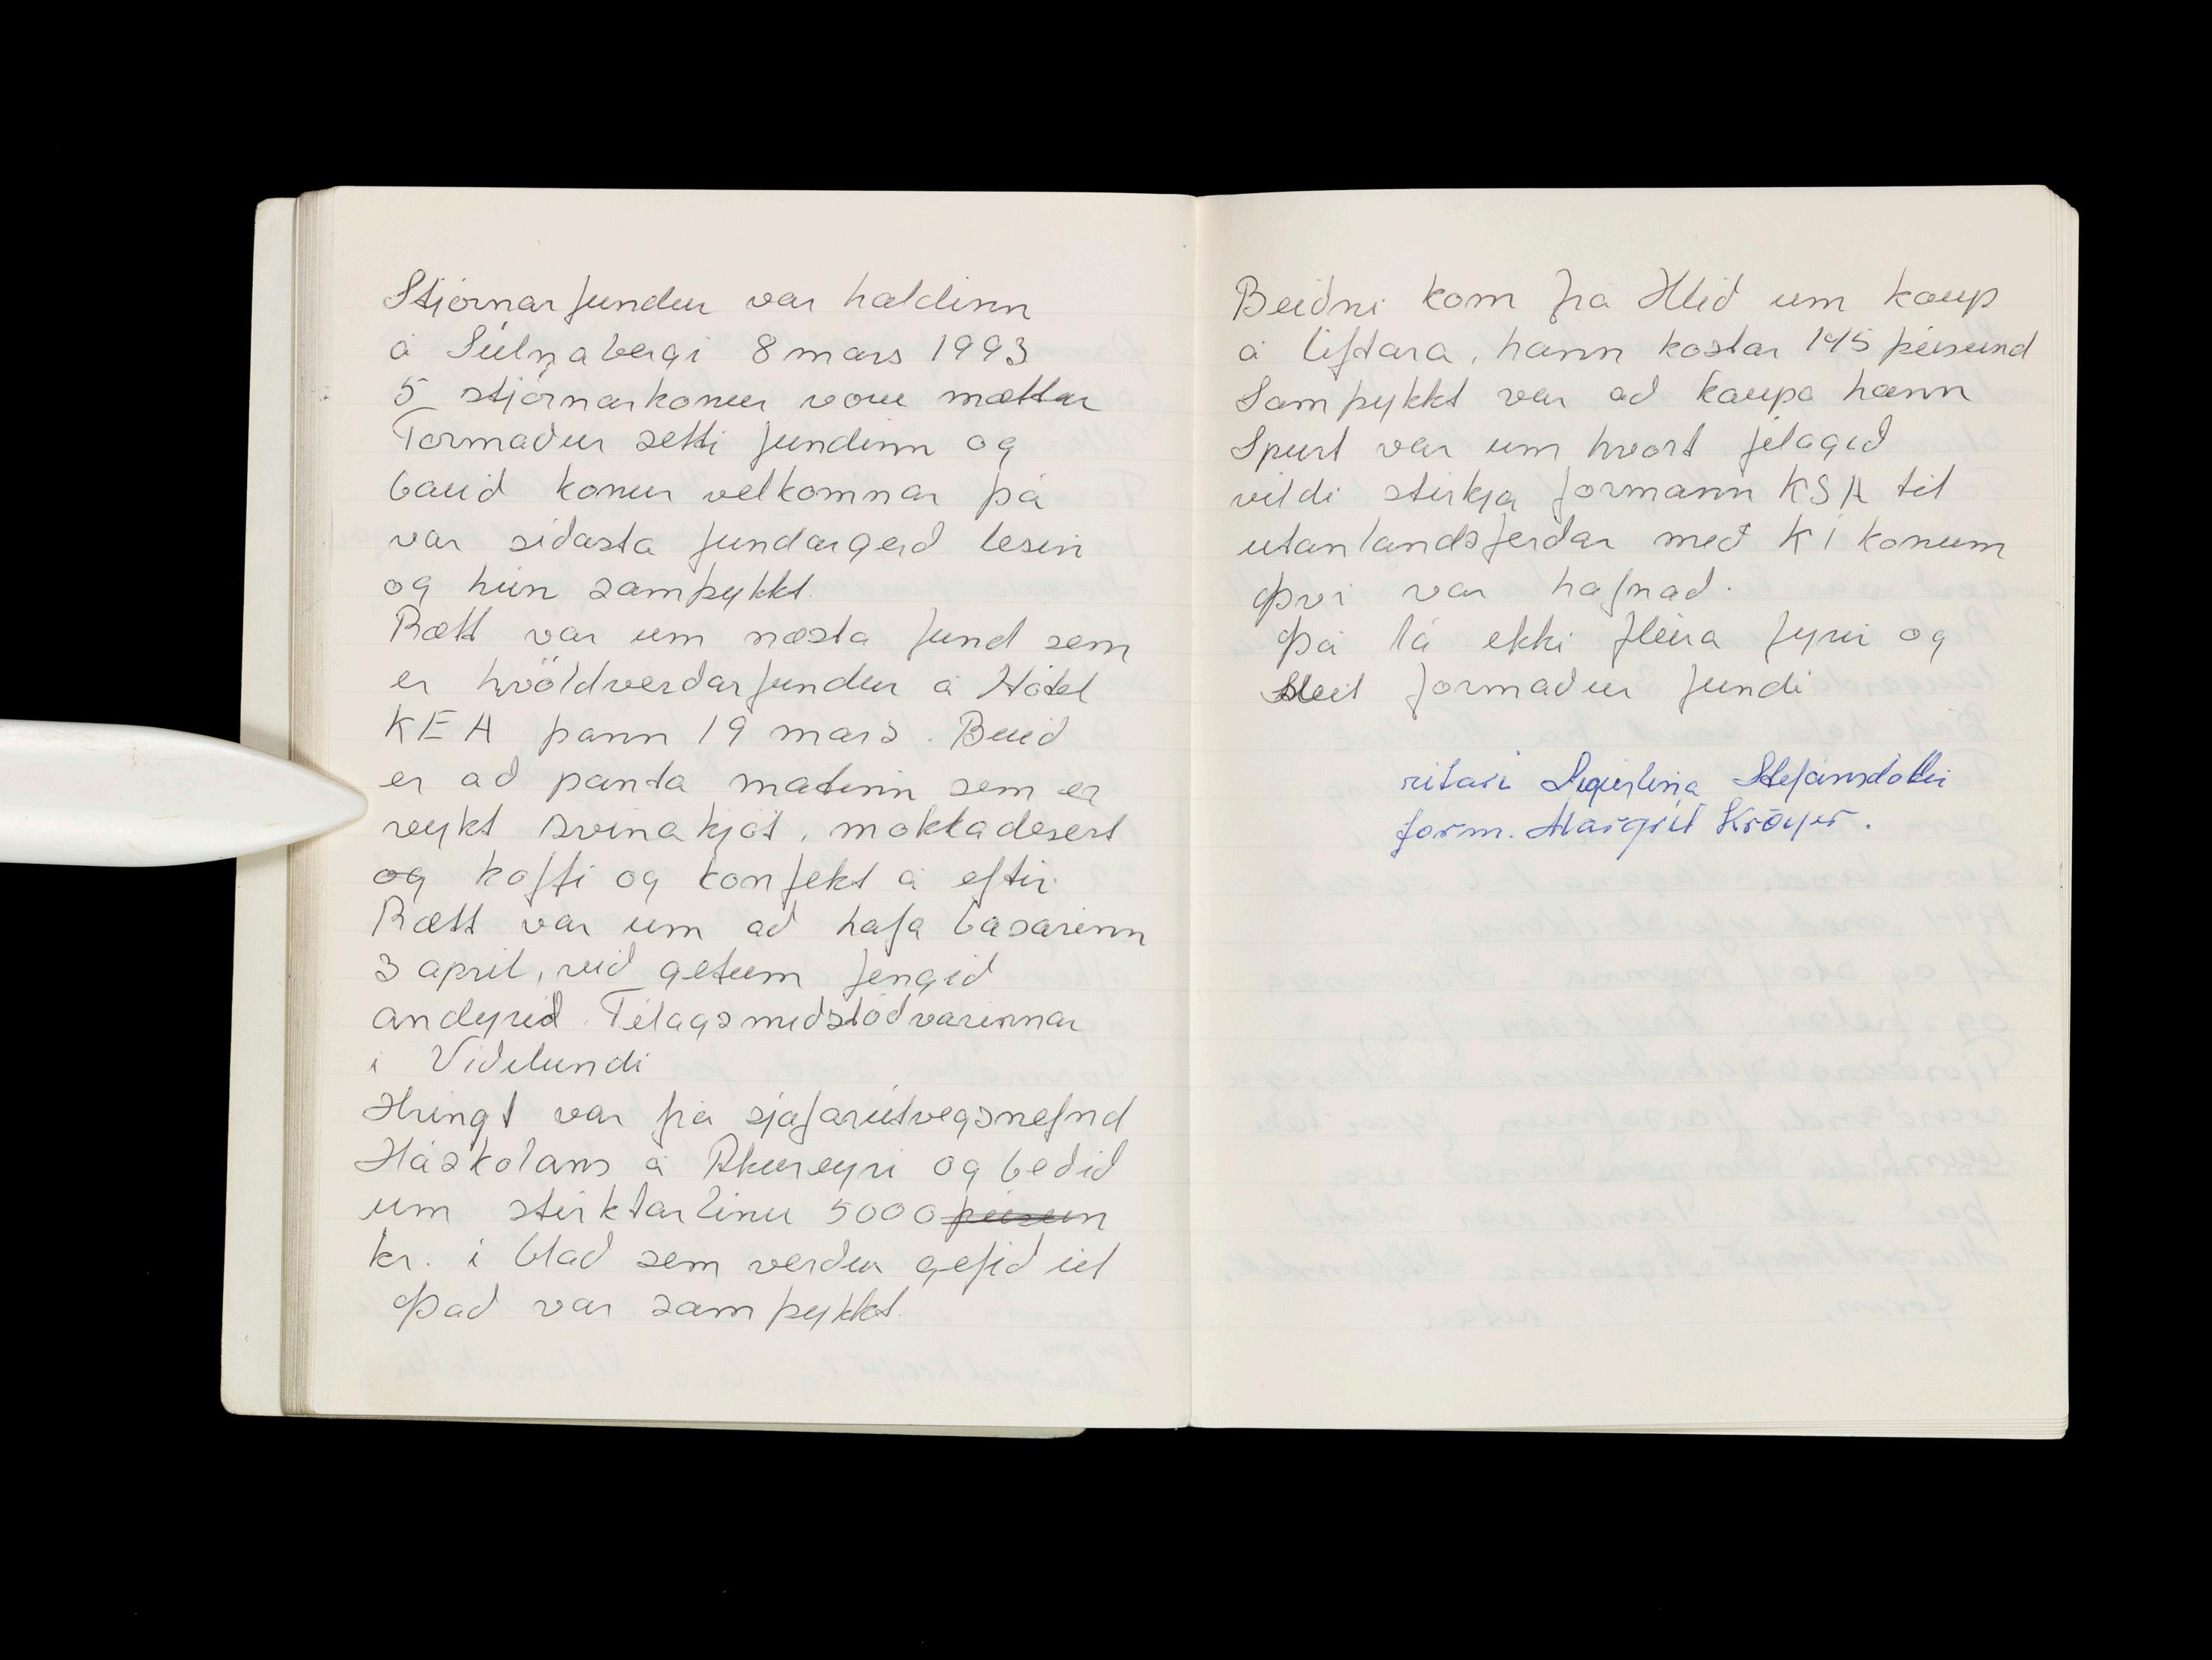 Stjórnarfundur var haldinn
á Súlnabergi 8 mars 1993
5 stjórnarkonur voru mættar
Formaður setti fundinn og
bauð konur velkomnar þá
var síðasta fundargerð lesin
og hún samþykkt.
Rætt var um næsta fund sem
er kvöldverðarfundur á Hótel
KEA þann 19 mars. Buið
er að panta matinn sem er
reykt svinakjöt, mokkadesert
og kaffi og konfekt á eftir
Rætt var um að hafa basarinn
3 april, við getum fengið
andyrið Félagsmiðstöðvarinnar
i Víðilundi
Hringt var frá sjáfarútvegsnefnd
Háskólans á Akureyri og beðið
um stirktarlinu 5000 þúsun
kr. i blað sem verður gefið út
Það var samþykkt.
Beiðni kom frá Hlíð um kaup
á liftara, hann kostar 145 þúsund
Samþykkt var að kaupa hann
Spurt var um hvort félagið
vildi stirkja formann KSA til
utanlandsferðar með KÍ konum
Þvi var hafnað.
Þá lá ekki fleira fyrir og
sleit formaður fundi
ritari Sigurlína Stefánsdóttir
form. Margrét Kröyer.